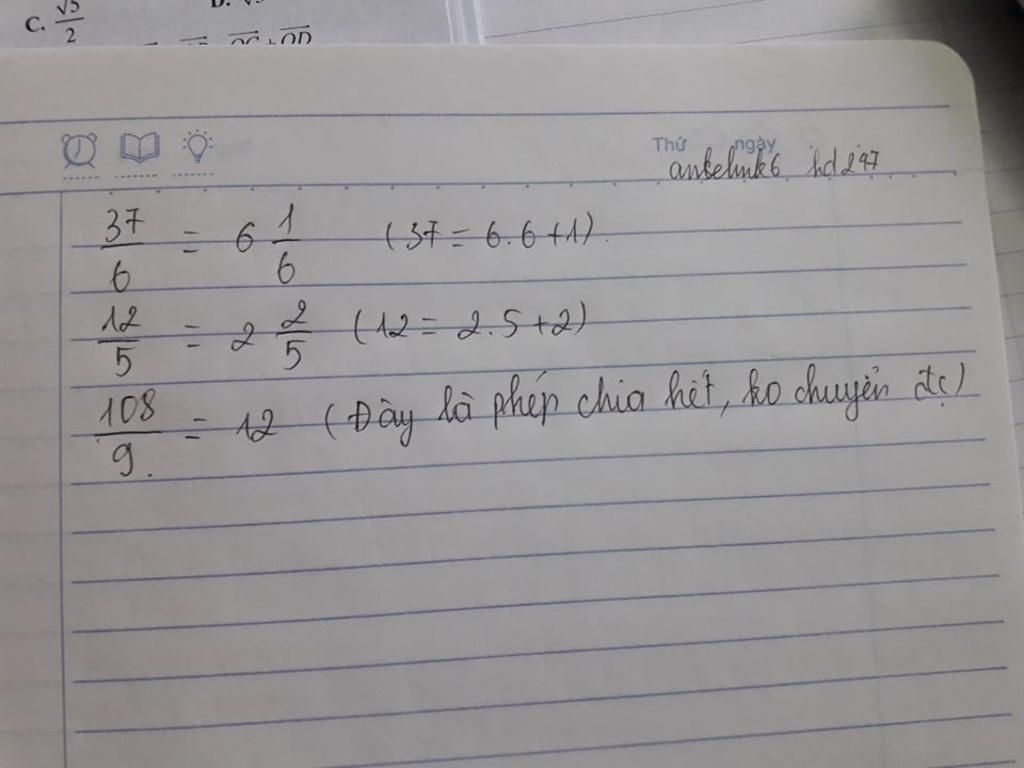 C. √5/2
D.
OC + OD
Thứ ngày
37/6 = 6 1/6 (37 = 6.6+1)
12/5 = 2 2/5 (12 = 2.5+2)
108/9. = 12 (Đây là phép chia hết, ko chuyển đc)